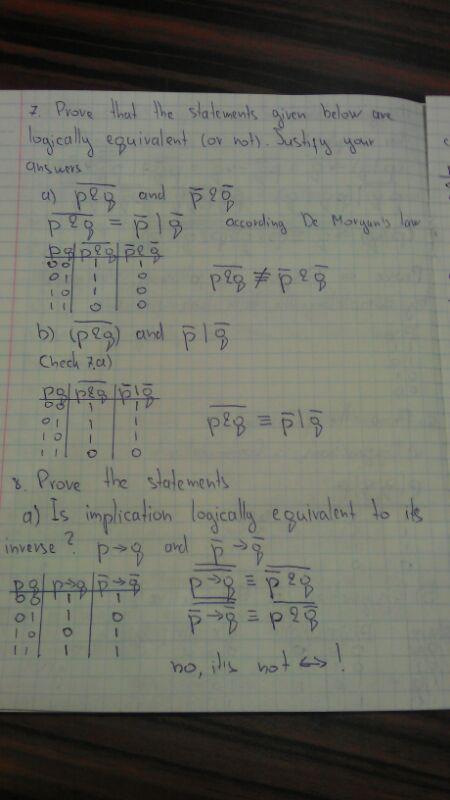 7. Prove that the statements given below are
logically equivalent (or not). Justify your
answers
a) p̅&̅q̅ and p̅ & q̅
p̅&̅q̅ = p̅ | q̅ according De Morgan's law
pq | p̅&̅q̅ | p̅ & q̅
00 | 1 | 1
01 | 1 | 0
10 | 1 | 0
11 | 0 | 0
p̅&̅q̅ ≢ p̅ & q̅
b) (p̅&̅q̅) and p̅ | q̅
Check 7.a)
pq | p̅&̅q̅ | p̅ | q̅
00 | 1 | 1
01 | 1 | 1
10 | 1 | 1
11 | 0 | 0
p̅&̅q̅ ≡ p̅ | q̅
8. Prove the statements
a) Is implication logically equivalent to its
inverse? p→q and p̅→q̅
pq | p→q | p̅→q̅
00 | 1 | 1
01 | 1 | 0
10 | 0 | 1
11 | 1 | 1
no, it's not ↔!